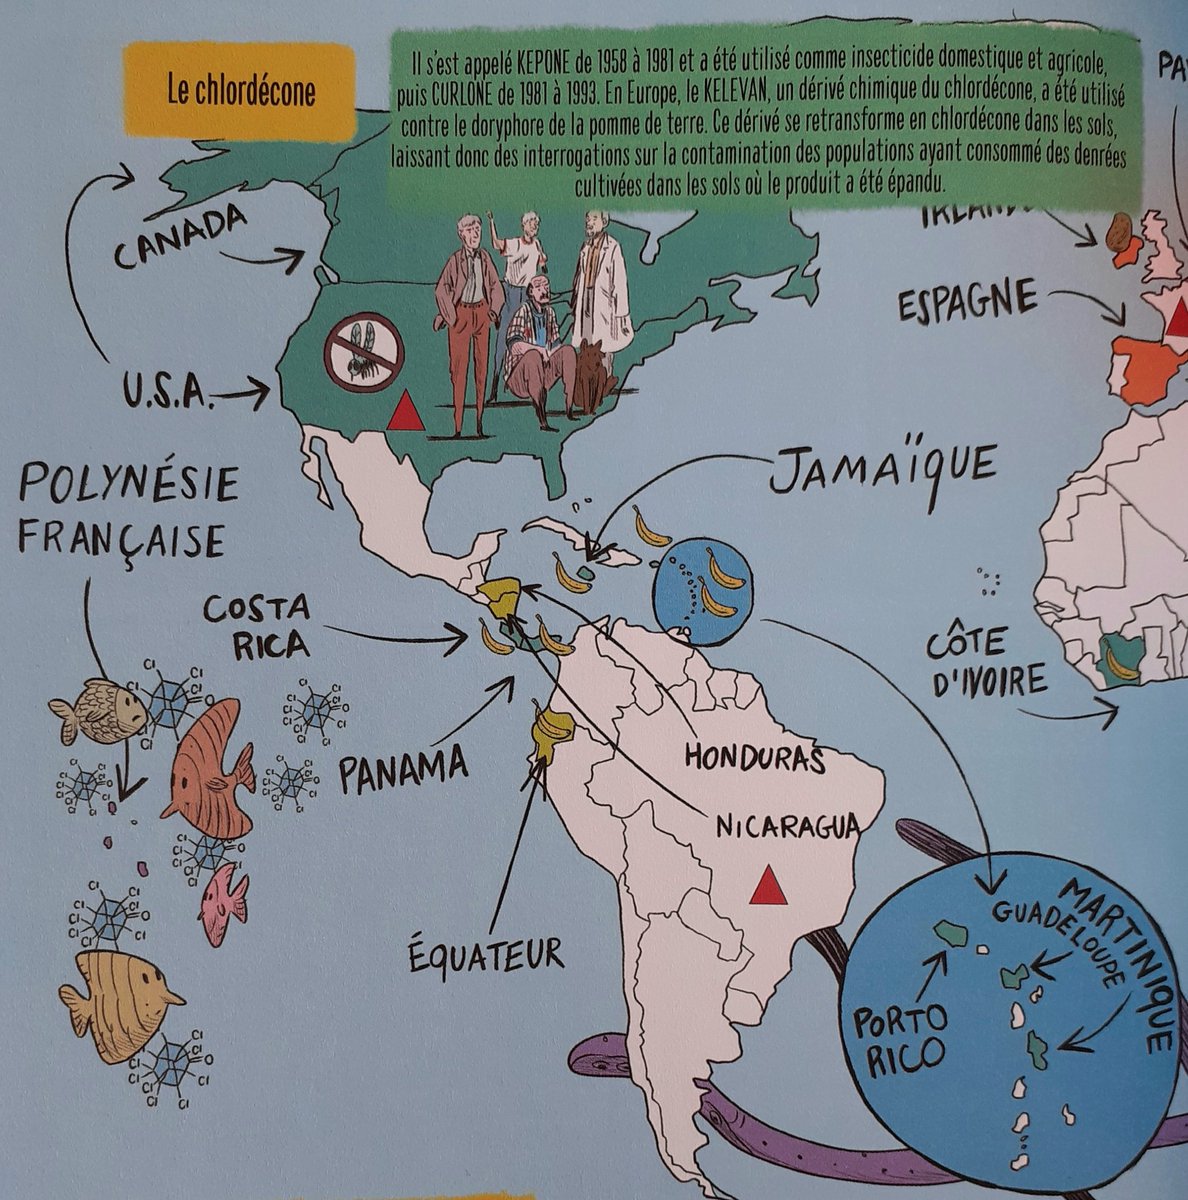 Le chlordécone
Il s'est appelé KEPONE de 1958 à 1981 et a été utilisé comme insecticide domestique et agricole,
puis CURLONE de 1981 à 1993. En Europe, le KELEVAN, un dérivé chimique du chlordécone, a été utilisé
contre le doryphore de la pomme de terre. Ce dérivé se retransforme en chlordécone dans les sols,
laissant donc des interrogations sur la contamination des populations ayant consommé des denrées
cultivées dans les sols où le produit a été épandu.
CANADA
ESPAGNE
U.S.A.
JAMAÏQUE
POLYNÉSIE
FRANÇAISE
COSTA
RICA
CÔTE
D'IVOIRE
PANAMA
HONDURAS
NICARAGUA
ÉQUATEUR
MARTINIQUE
GUADELOUPE
PORTO
RICO